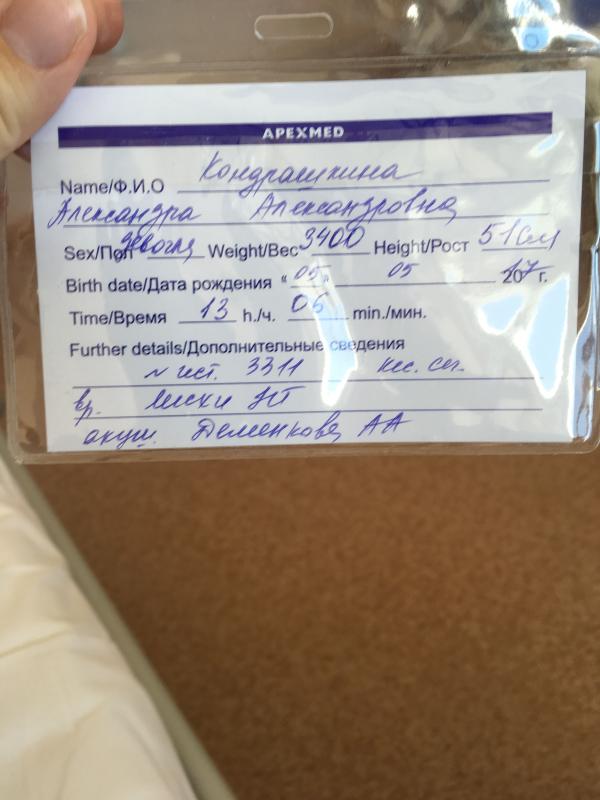 APEXMED
Name/Ф.И.О Кондрашкина
Александра Александровна
Sex/Пол девочка Weight/Вес 3400 Height/Рост 51см
Birth date/Дата рождения "05" 05 2017 г.
Time/Время 13 h./ч. 06 min./мин.
Further details/Дополнительные сведения
N ист. 3311 кес. сеч.
вр.
акуш. Деменкова АА